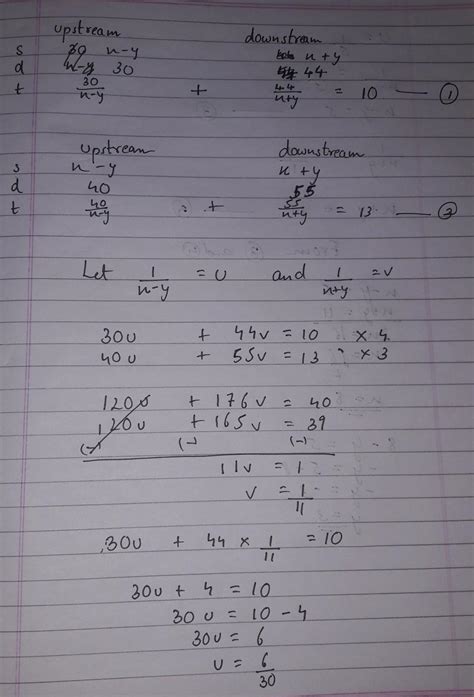 upstream downstream
s n-y n+y
d 30 44
t 30/n-y + 44/n+y = 10 — ①
upstream downstream
s n-y n+y
d 40 55
t 40/n-y + 55/n+y = 13 — ②
Let 1/n-y = U and 1/n+y = v
30u + 44v = 10 × 4
40u + 55v = 13 × 3
120u + 176v = 40
120u + 165v = 39
(-) (-) (-)
11v = 1
v = 1/11
30u + 44 × 1/11 = 10
30u + 4 = 10
30u = 10 - 4
30u = 6
u = 6/30